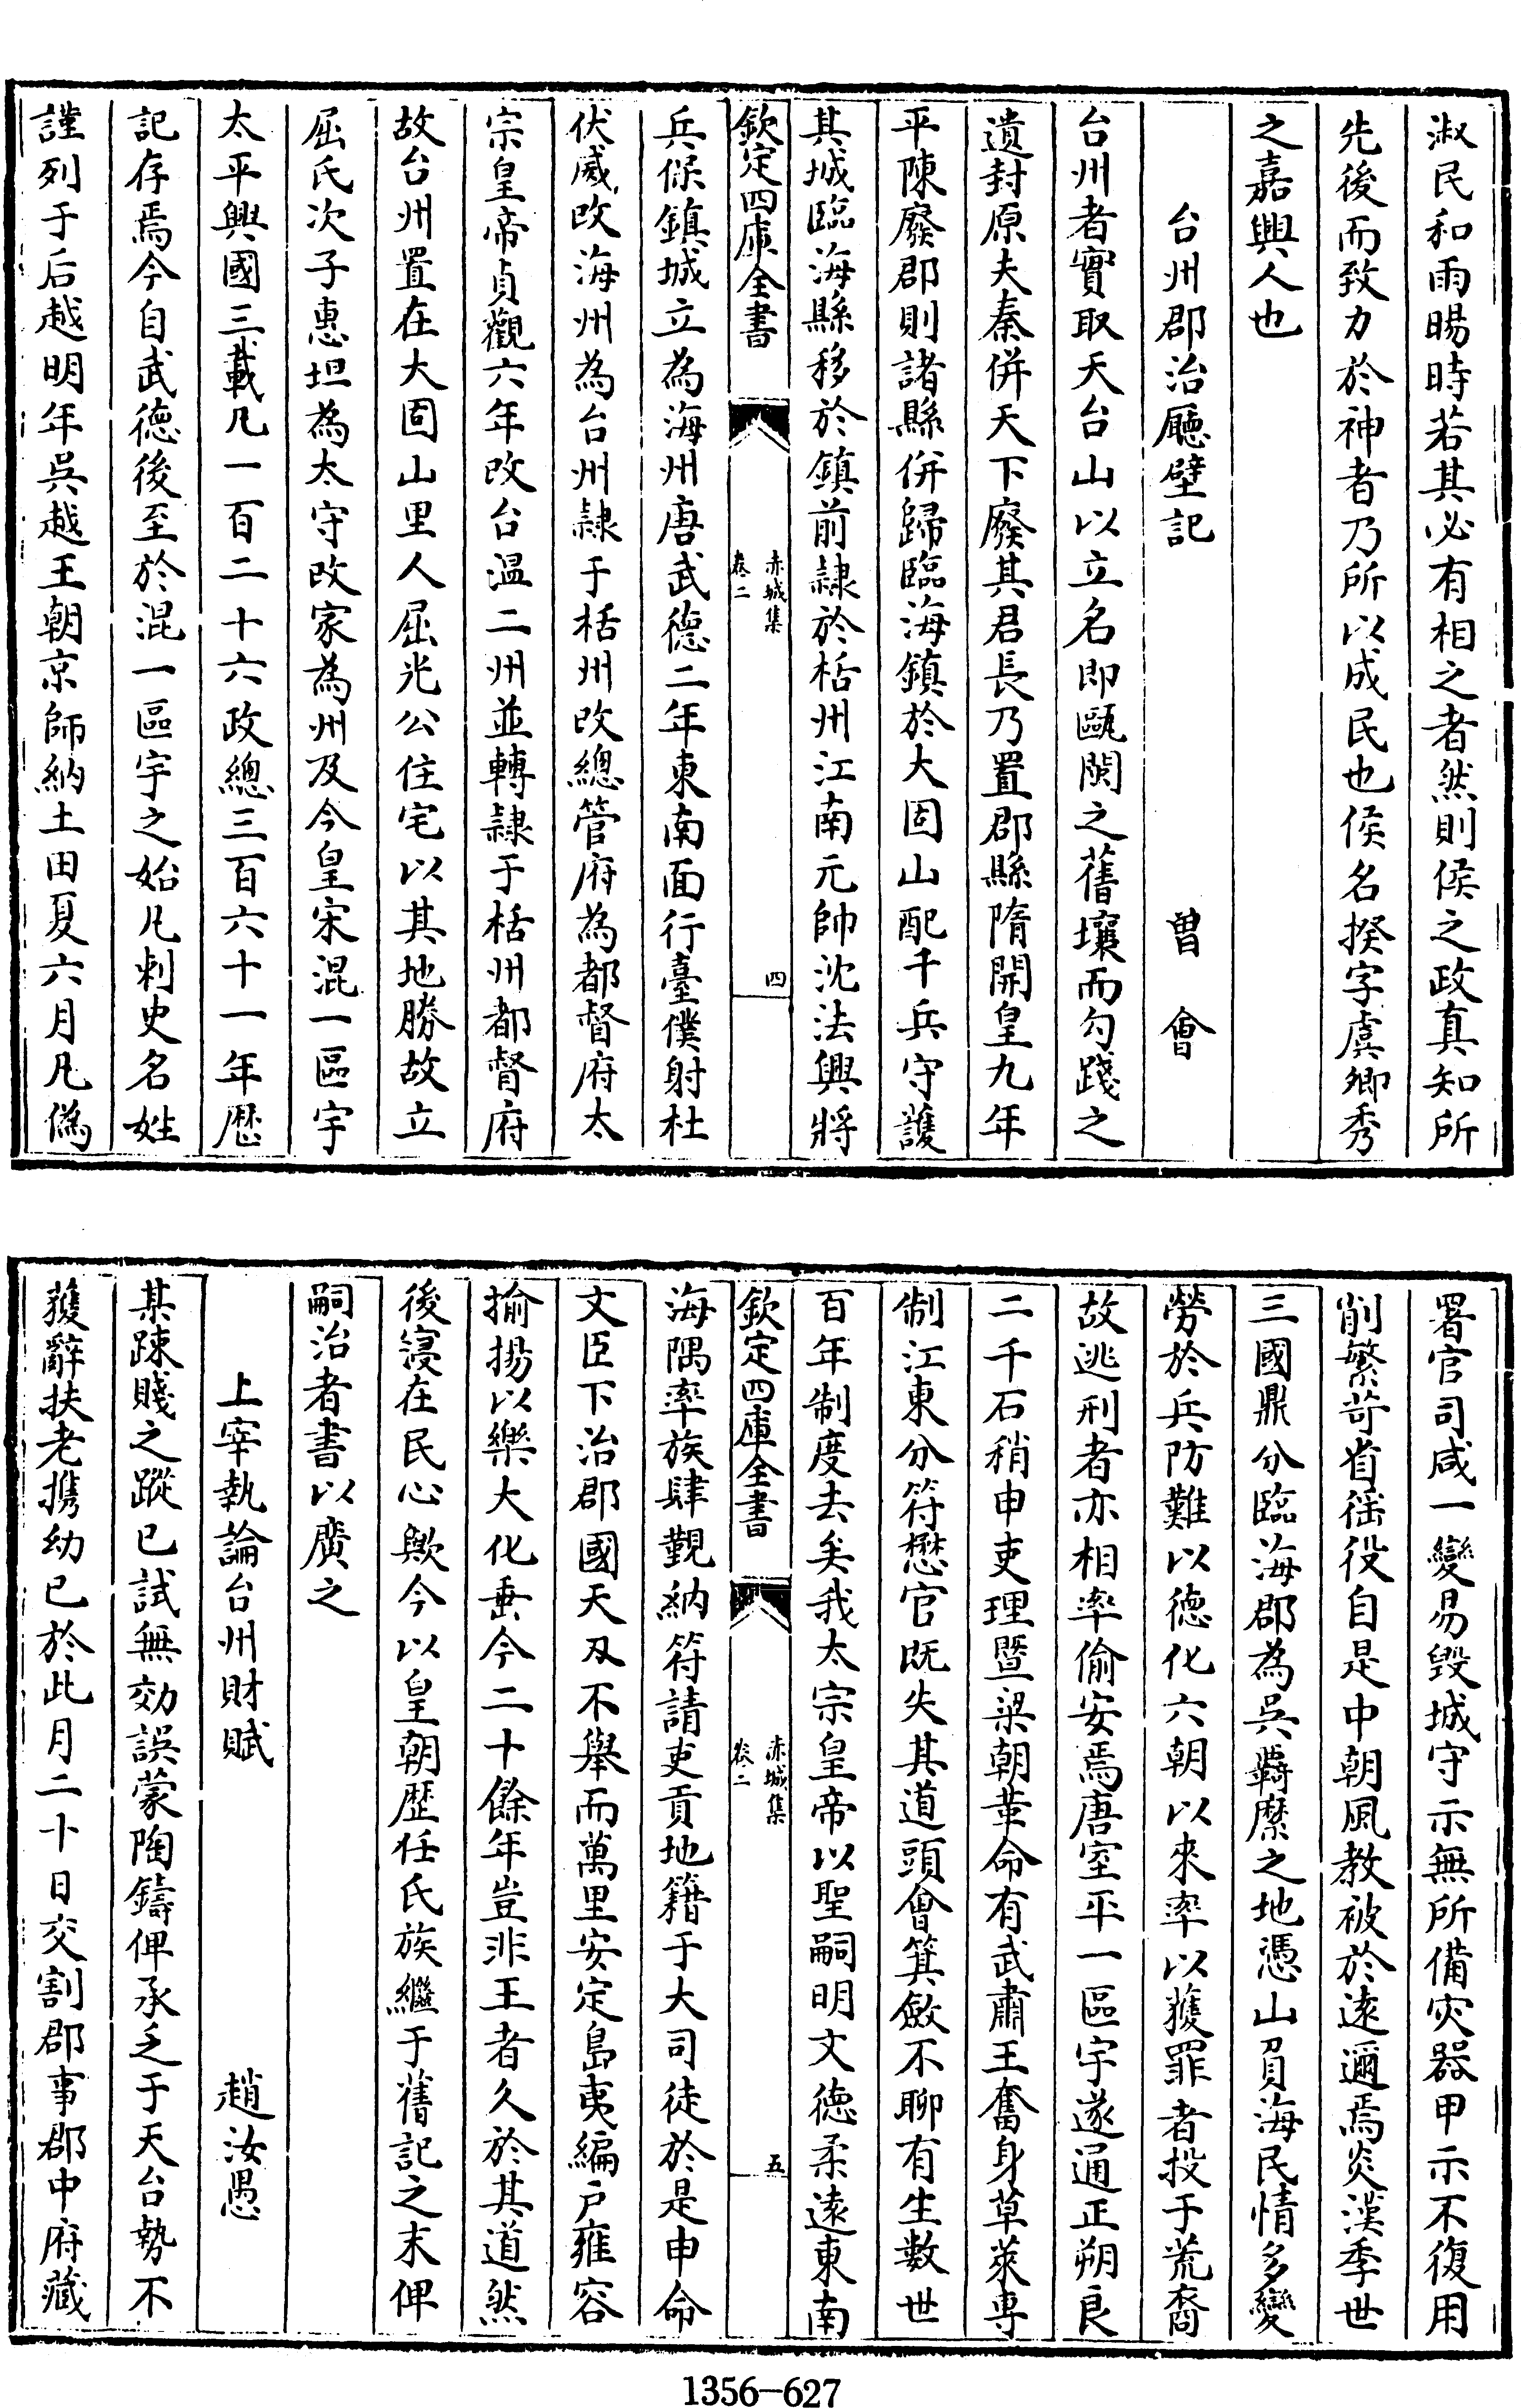 淑民和雨暘時若其必有相之者然則侯之政真知所
先後而致力於神者乃所以成民也侯名揆字虞卿秀
之嘉興人也
台州郡治廳壁記
曽會
台州者實取天台山以立名即甌閩之舊壤而勾踐之
遺封原夫秦併天下廢其君長乃置郡縣隋開皇九年
平陳廢郡則諸縣併歸臨海鎮於大固山配千兵守護
其城臨海縣移於鎮前隷於栝州江南元帥沈法興將
欽定四庫全書
赤城集
卷二
四
兵保鎮城立為海州唐武德二年東南面行臺僕射杜
伏威改海州為台州隷于栝州改總管府為都督府太
宗皇帝貞觀六年改台溫二州並轉隷于栝州都督府
故台州置在大固山里人屈光公住宅以其地勝故立
屈氏次子惠坦為太守改家為州及今皇宋混一區宇
太平興國三載凡一百二十六政總三百六十一年歴
記存焉今自武德後至於混一區宇之始凡刺史名姓
謹列于后越明年吳越王朝京師納土田夏六月凡僞
署官司咸一變易毀城守示無所備灾器甲示不復用
削繁苛省徭役自是中朝風教被於遠邇焉炎漢季世
三國鼎分臨海郡為吳羇縻之地憑山負海民情多變
勞於兵防難以德化六朝以來率以獲罪者投于荒裔
故逃刑者亦相率偷安焉唐室平一區宇遂通正朔良
二千石稍申吏理暨梁朝革命有武肅王奮身草萊専
制江東分符懋官既失其道頭會箕斂不聊有生數世
百年制度去矣我太宗皇帝以聖嗣明文德柔遠東南
欽定四庫全書
赤城集
卷二
五
海隅率族肆覲納符請吏貢地籍于大司徒於是申命
文臣下治郡國天刄不舉而萬里安定島夷編户雍容
揄揚以樂大化垂今二十餘年豈非王者久於其道然
後寖在民心歟今以皇朝歴任氏族繼于舊記之末俾
嗣治者書以廣之
上宰執論台州財賦
趙汝愚
某踈賤之蹤已試無効誤蒙陶鑄俾承乏于天台勢不
獲辭扶老携幼已於此月二十日交割郡事郡中府藏
1356-627